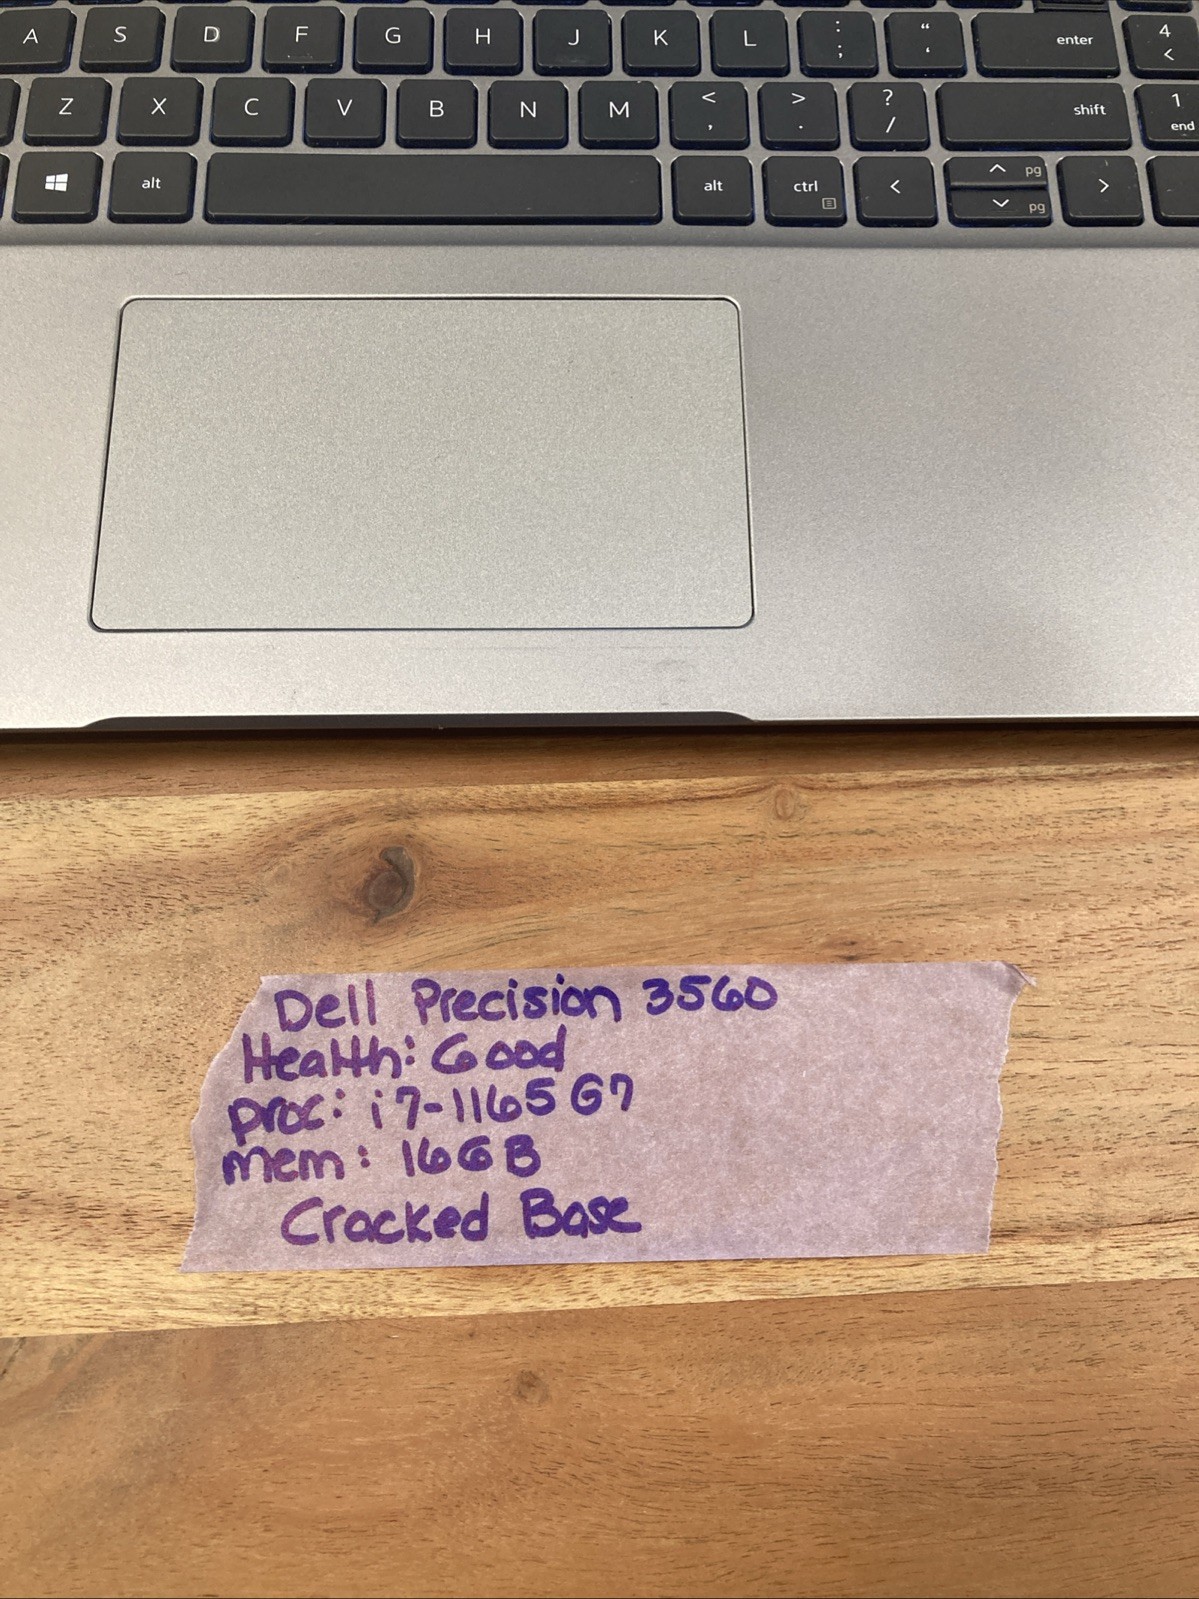 A S D F G H J K L : ; “ ‘ enter 4 <
Z X C V B N M < , > . ? / shift 1 end
alt alt ctrl < ^ pg > 
pg
Dell Precision 3560
Health: Good
proc: i7-1165G7
mem: 16GB
Cracked Base